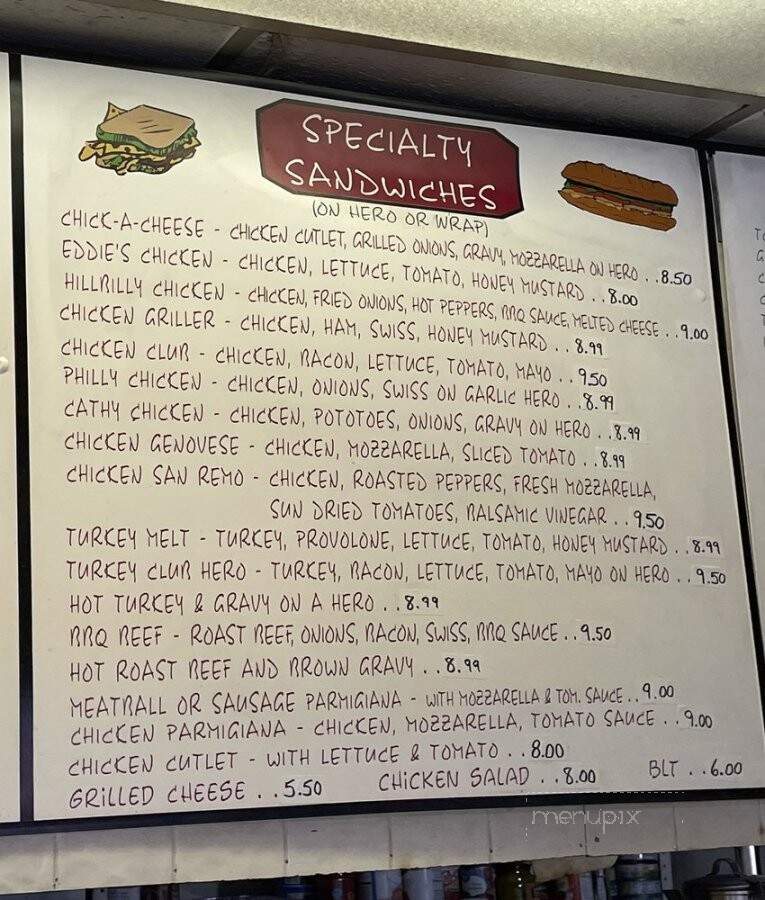 SPECIALTY
SANDWICHES
(ON HERO OR WRAP)
CHICK-A-CHEESE - CHICKEN CUTLET, GRILLED ONIONS, GRAVY, MOZZARELLA ON HERO . . 8.50
EDDIE'S CHICKEN - CHICKEN, LETTUCE, TOMATO, HONEY MUSTARD . . 8.00
HILLBILLY CHICKEN - CHICKEN, FRIED ONIONS, HOT PEPPERS, BBQ SAUCE, MELTED CHEESE . . 9.00
CHICKEN GRILLER - CHICKEN, HAM, SWISS, HONEY MUSTARD . . 8.99
CHICKEN CLUB - CHICKEN, BACON, LETTUCE, TOMATO, MAYO . . 9.50
PHILLY CHICKEN - CHICKEN, ONIONS, SWISS ON GARLIC HERO . . 8.99
CATHY CHICKEN - CHICKEN, POTOTOES, ONIONS, GRAVY ON HERO . . 8.99
CHICKEN GENOVESE - CHICKEN, MOZZARELLA, SLICED TOMATO . . 8.99
CHICKEN SAN REMO - CHICKEN, ROASTED PEPPERS, FRESH MOZZARELLA,
SUN DRIED TOMATOES, BALSAMIC VINEGAR . . 9.50
TURKEY MELT - TURKEY, PROVOLONE, LETTUCE, TOMATO, HONEY MUSTARD . . 8.99
TURKEY CLUB HERO - TURKEY, BACON, LETTUCE, TOMATO, MAYO ON HERO . . 9.50
HOT TURKEY & GRAVY ON A HERO . . 8.99
BBQ BEEF - ROAST BEEF, ONIONS, BACON, SWISS, BBQ SAUCE . . 9.50
HOT ROAST BEEF AND BROWN GRAVY . . 8.99
MEATBALL OR SAUSAGE PARMIGIANA - WITH MOZZARELLA & TOM. SAUCE . . 9.00
CHICKEN PARMIGIANA - CHICKEN, MOZZARELLA, TOMATO SAUCE . . 9.00
CHICKEN CUTLET - WITH LETTUCE & TOMATO . . 8.00
GRILLED CHEESE . . 5.50 CHICKEN SALAD . . 8.00 BLT . . 6.00
menupix